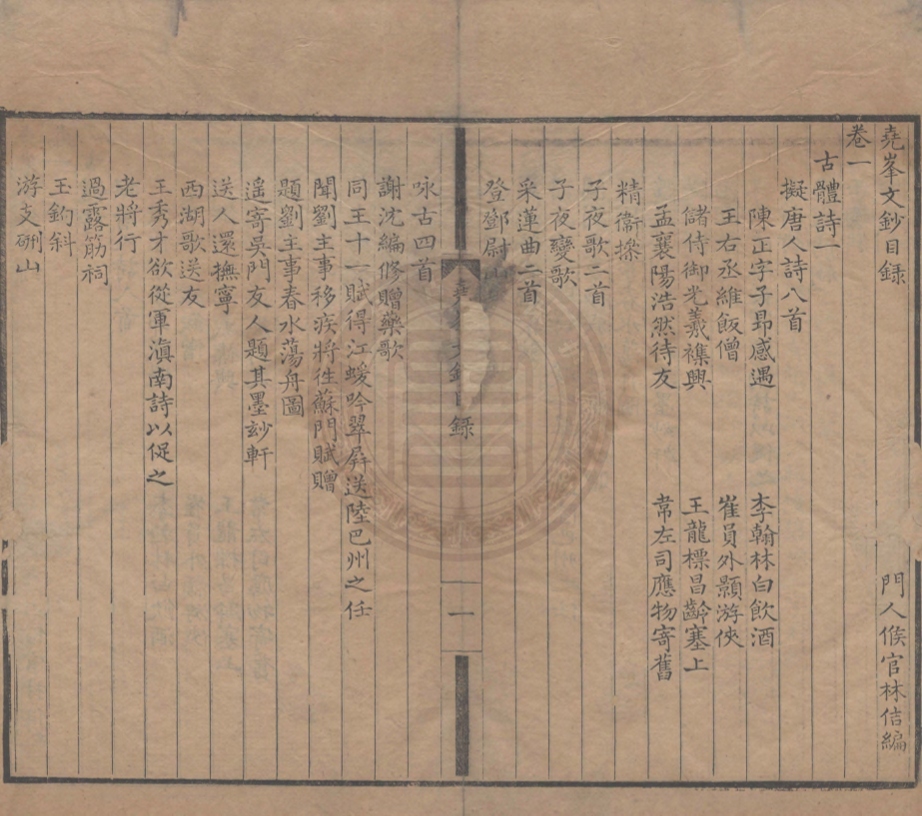 堯峯文鈔目録
門人侯官林佶編
卷一
古體詩一
擬唐人詩八首
陳正字子昂感遇
李翰林白飲酒
王右丞維飯僧
崔員外顥游俠
儲侍御光羲襍興
王龍標昌齡塞上
孟襄陽浩然待友
常左司應物寄舊
精衞操
子夜歌二首
子夜變歌
采蓮曲二首
登鄧尉山
堯 文鈔目録
一
咏古四首
謝沈編修贈藥歌
同王十一賦得江蝯吟翠屏送陸巴州之任
聞劉主事移疾將徃蘇門賦贈
題劉主事春水蕩舟圖
遥寄吳門友人題其墨玅軒
送人還撫寧
西湖歌送友
王秀才欲從軍滇南詩以促之
老將行
過露筋祠
玉鉤斜
游支硎山